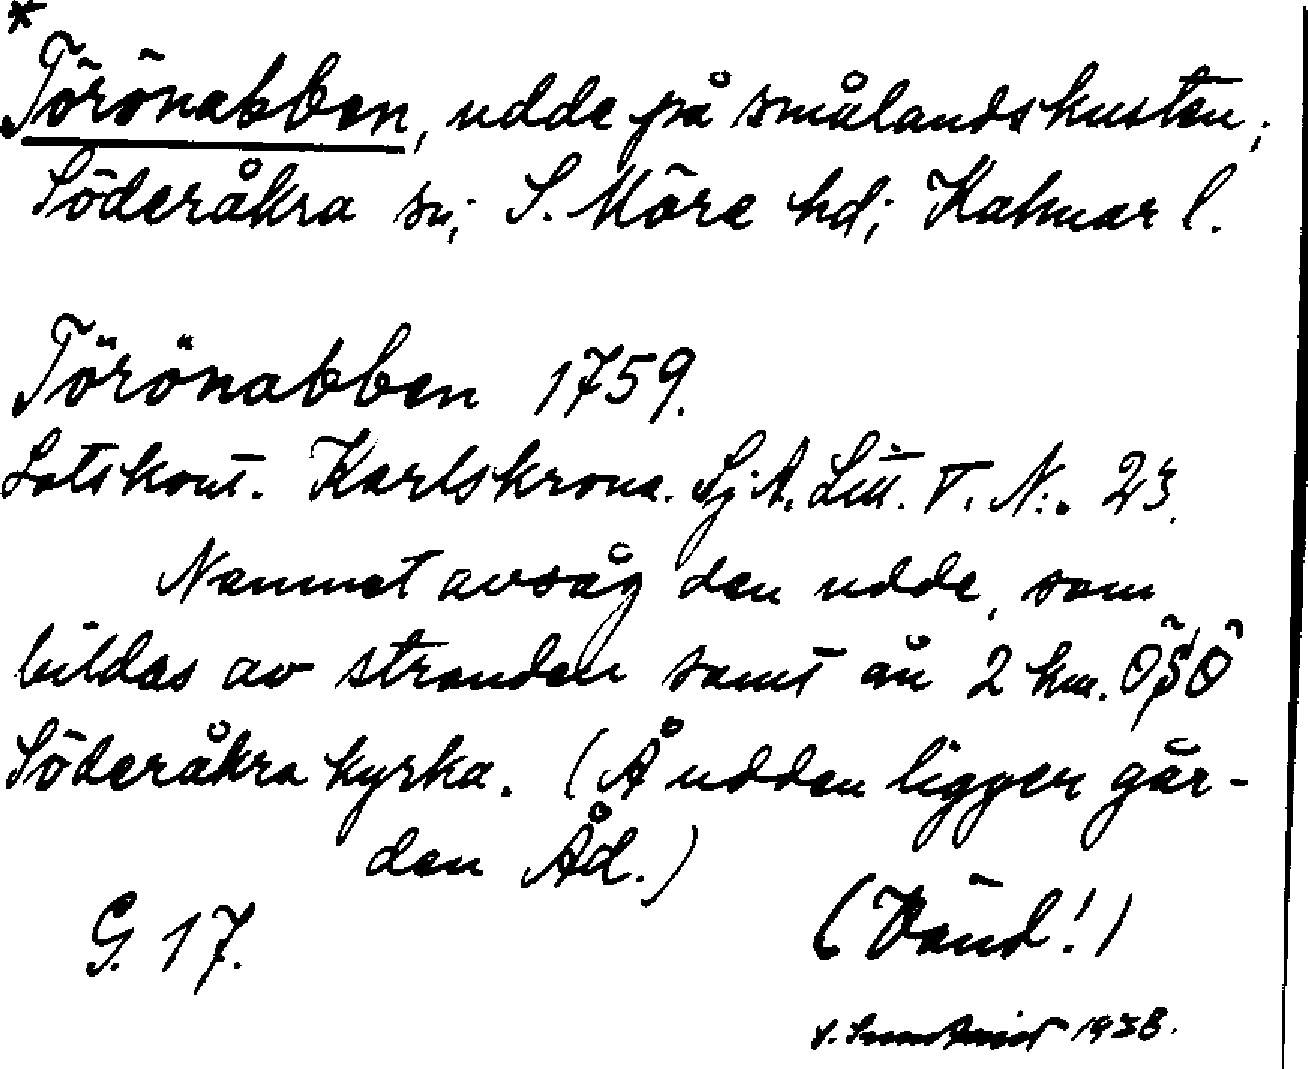 *
Törönabben, udde på smålandskusten;
Söderåkra sn; S. Möre hd; Kalmar l.
Törönabben 1759.
Lotskont. Karlskrona. Sj.A. Litt. T. N:. 23.
Namnet avsåg den udde, som
bildas av stranden samt än 2 km. ÖSÖ
Söderåkra kyrka. (Å udden ligger går-
den Åd.)
G. 17.
(Vänd!)
1938.